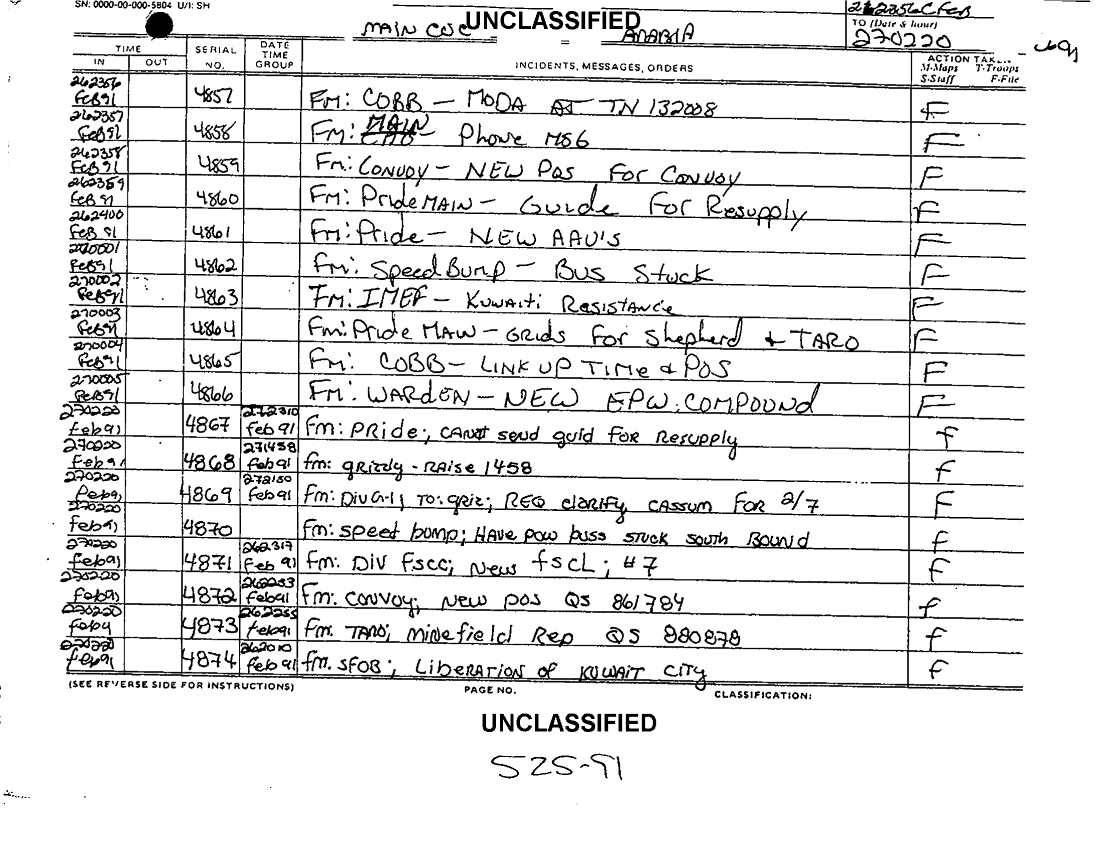 SN: 0000-00-000-5804 U/I: SH
UNCLASSIFIED
262356C Feb
MAIN COC
=
ARABIA
TO (Date & hour)
270220
TIME
SERIAL NO.
DATE TIME GROUP
INCIDENTS, MESSAGES, ORDERS
ACTION TAKEN
IN OUT
M-Maps T-Troops
S-Staff F-File
262356 Feb 91 4857 Fm: COBB - MODA AT TN 132008 F
262357 Feb 91 4858 Fm: MAIN Phone MSG F
262358 Feb 91 4859 Fm: CONVOY - NEW POS For CONVOY F
262359 Feb 91 4860 Fm: Pride MAIN - Guide For Resupply F
262400 Feb 91 4861 Fm: Pride - NEW AAU'S F
270001 Feb 91 4862 Fm: Speed Bump - Bus Stuck F
270002 Feb 91 4863 Fm: IMEF - Kuwaiti Resistance F
270003 Feb 91 4864 Fm: Pride MAIN - GRIDS For Shepherd & TARO F
270004 Feb 91 4865 Fm: COBB - LINK UP TIME & POS F
270005 Feb 91 4866 Fm: WARDEN - NEW EPW COMPOUND F
270220 Feb 91 4867 272310 Feb 91 Fm: PRide; CANOT send guid FOR Resupply f
270220 Feb 91 4868 271458 Feb 91 fm: grizzly - RAise 1458 f
270220 Feb 91 4869 272150 Feb 91 Fm: Div G-1; TO: griz; REQ clarify CASSUM For 2/7 F
270220 Feb 91 4870 fm: speed bump; HAVE POW buss stuck south Bound f
270220 Feb 91 4871 262317 Feb 91 fm: Div Fscc; New fscL; #7 F
270220 Feb 91 4872 262253 Feb 91 Fm: convoy; New pos QS 861784 f
270220 Feb 91 4873 262255 Feb 91 Fm. TARO; Minefield Rep QS 880878 f
270220 Feb 91 4874 262010 Feb 91 fm. SFOB; Liberation of KUWAIT CITY f
(SEE REVERSE SIDE FOR INSTRUCTIONS)
PAGE NO.
CLASSIFICATION:
UNCLASSIFIED
525-91